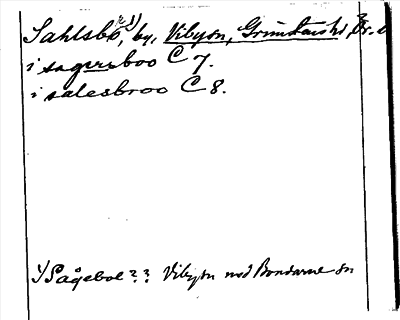 Sahlsbo, by, Vibyon, Grimstens hd, Ör. l
i sagersboo C 7.
i salesbroo C 8.
1) Pågeboe?? Vibyon med Bondarne on